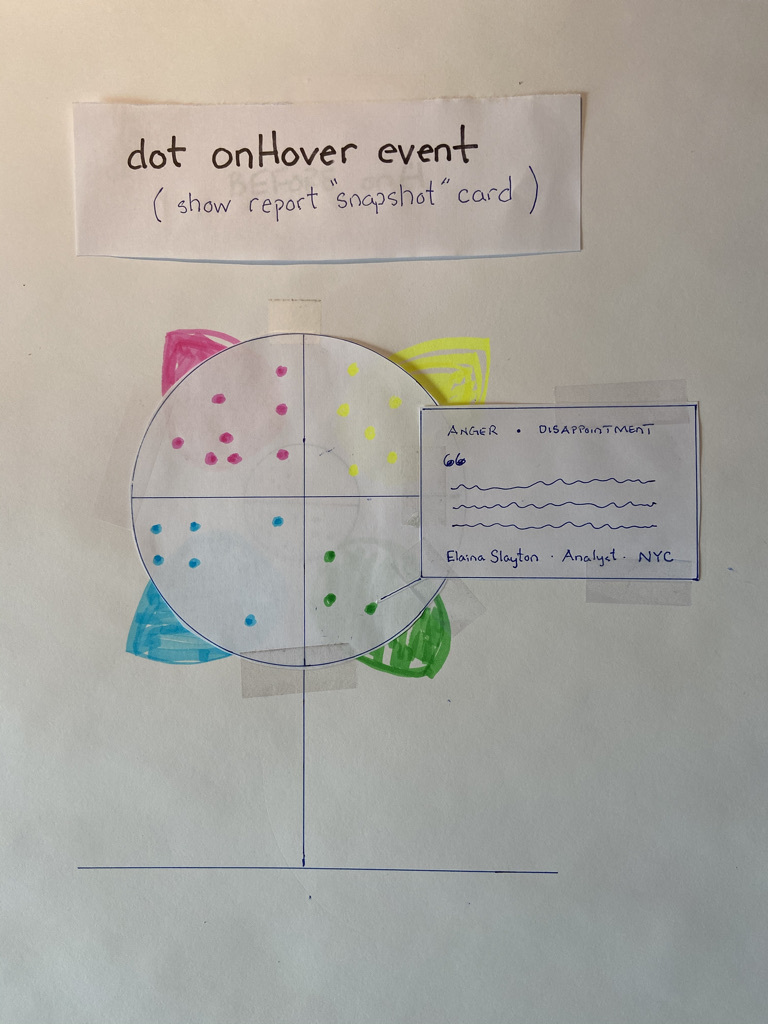 dot onHover event
( show report "snapshot" card )
ANGER • DISAPPOINTMENT
66
Elaina Slayton · Analyst · NYC